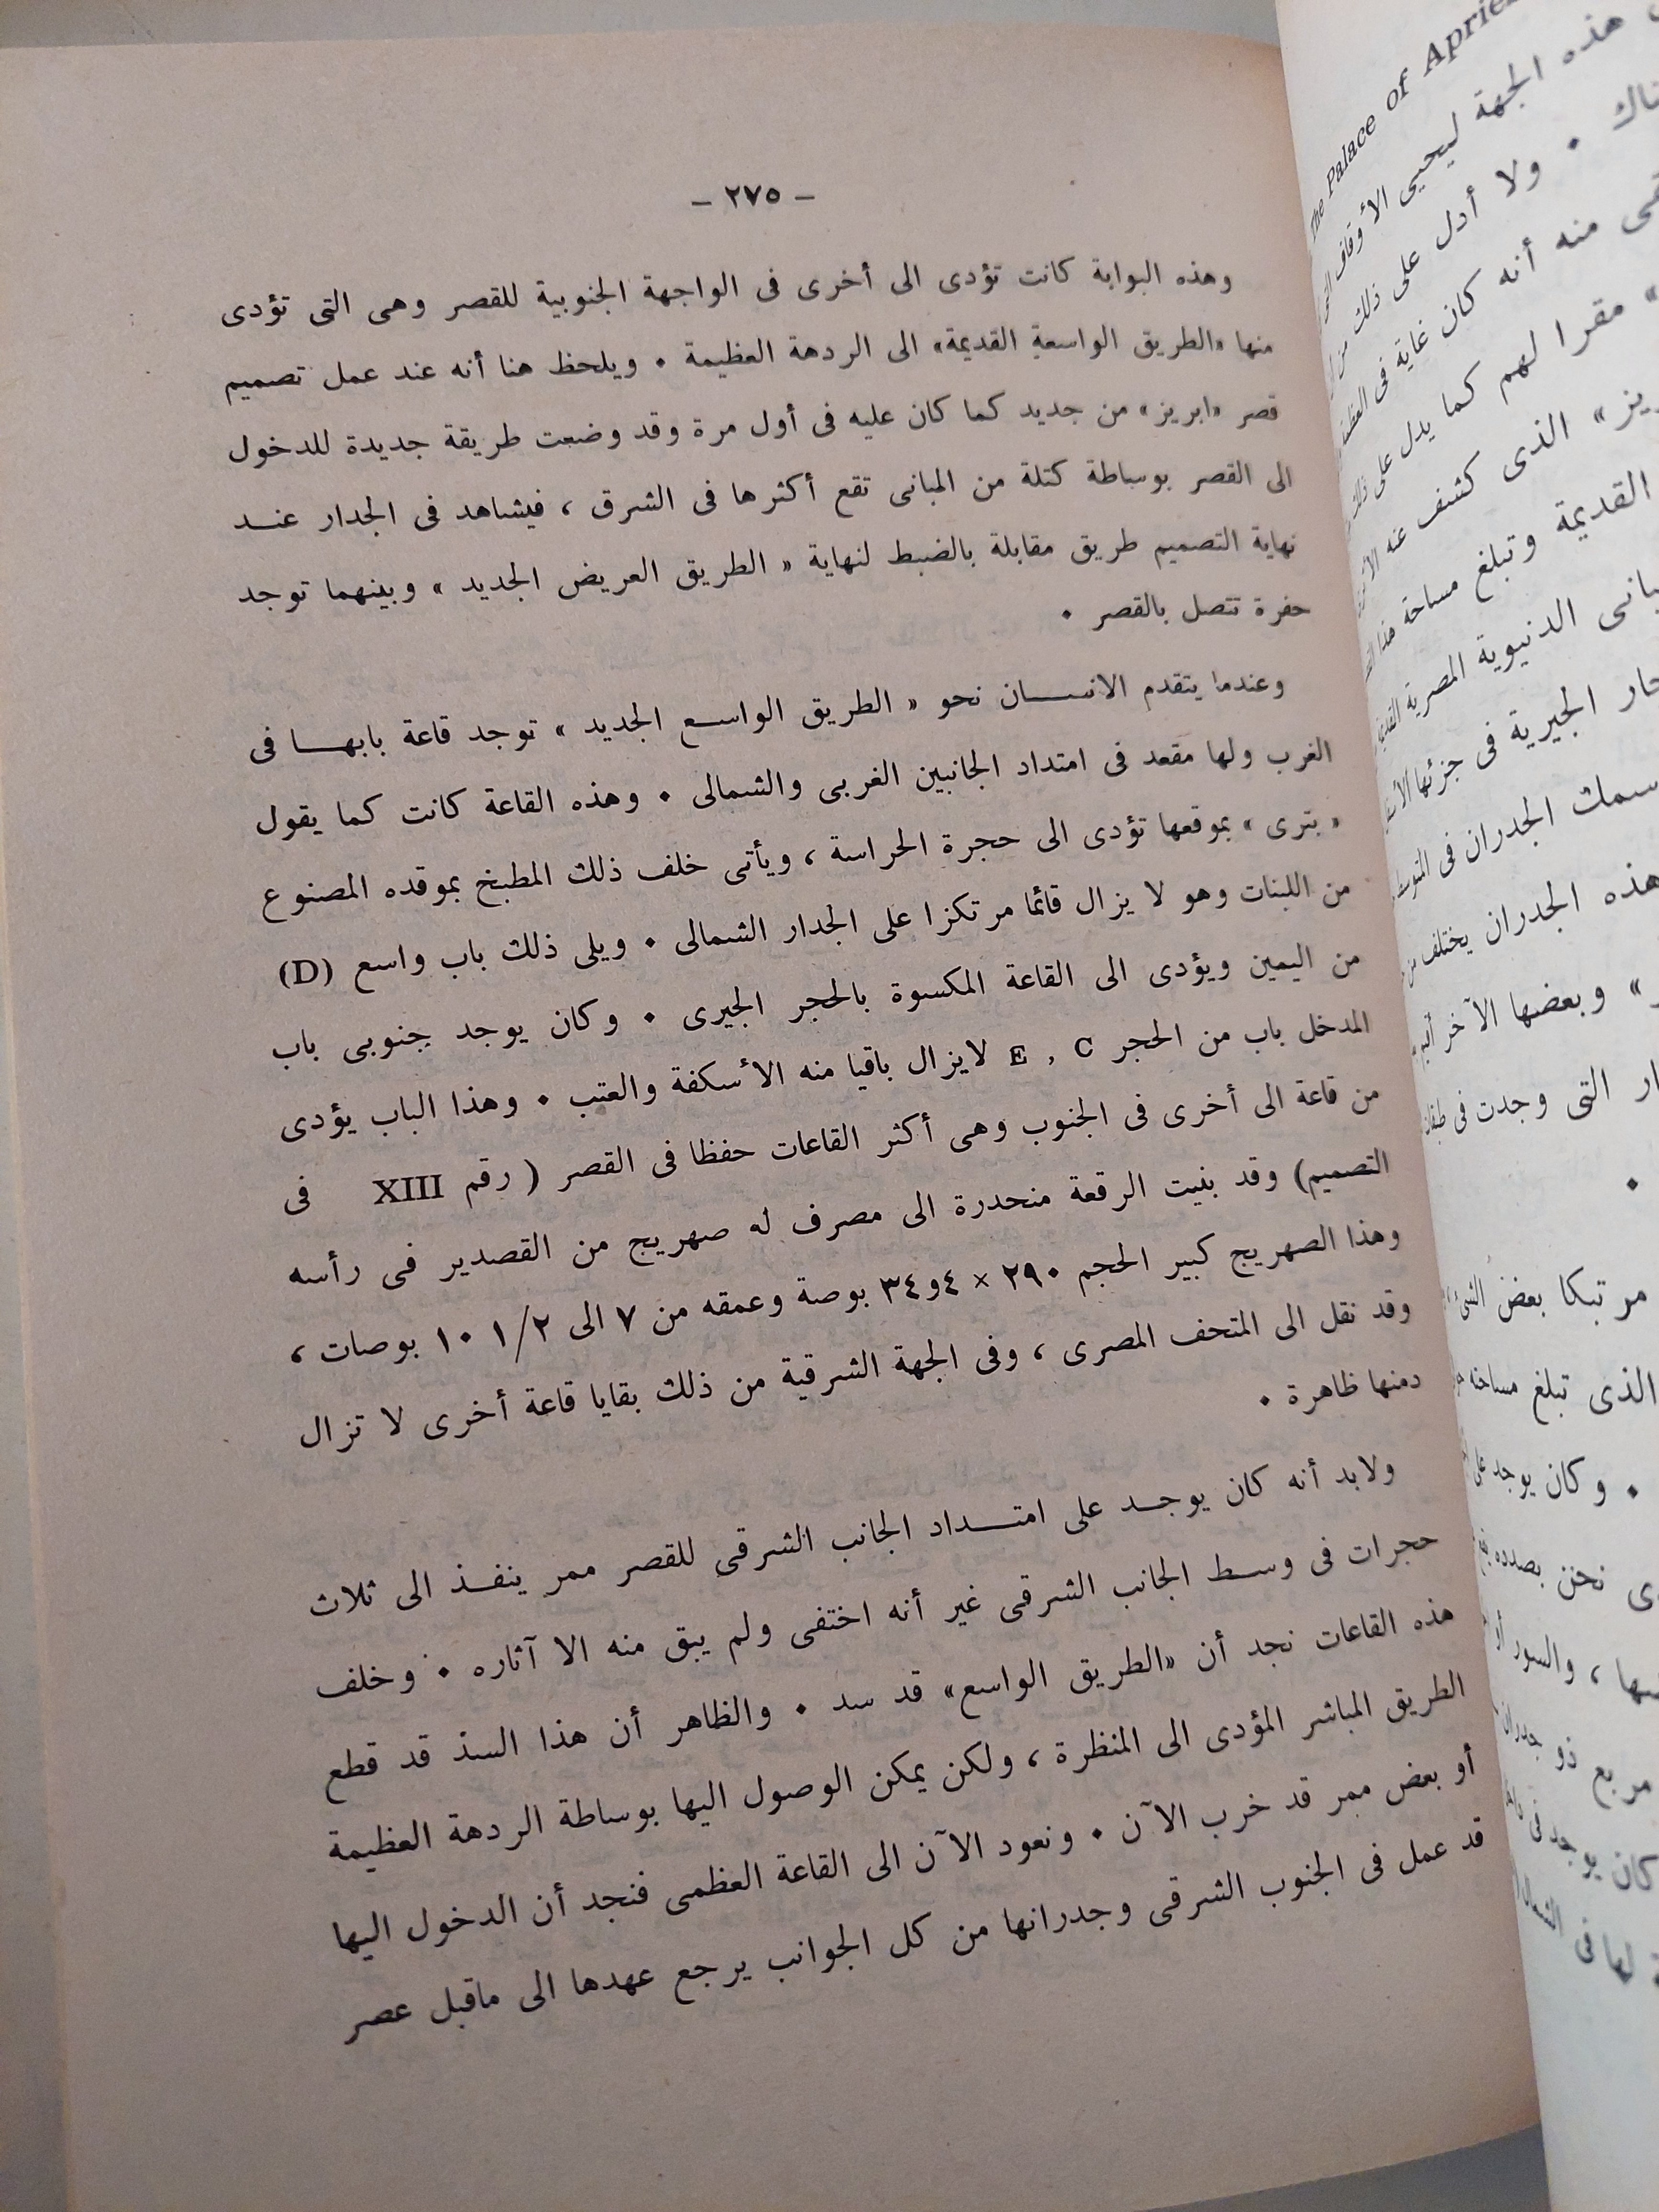 - ٢٧٥ -
وهذه البوابة كانت تؤدى الى أخرى فى الواجهة الجنوبية للقصر وهى التى تؤدى
منها «الطريق الواسعة القديمة» الى الردهة العظيمة . ويلحظ هنا أنه عند عمل تصميم
قصر «ابريز» من جديد كما كان عليه فى أول مرة وقد وضعت طريقة جديدة للدخول
الى القصر بوساطة كتلة من المبانى تقع أكثرها فى الشرق ، فيشاهد فى الجدار عند
نهاية التصميم طريق مقابلة بالضبط لنهاية « الطريق العريض الجديد » وبينهما توجد
حفرة تتصل بالقصر .
وعندما يتقدم الانسان نحو « الطريق الواسع الجديد » توجد قاعة بابها فى
الغرب ولها مقعد فى امتداد الجانبين الغربى والشمالى . وهذه القاعة كانت كما يقول
« بترى » بموقعها تؤدى الى حجرة الحراسة ، ويأتى خلف ذلك المطبخ بموقده المصنوع
من اللبنات وهو لا يزال قائما مرتكزا على الجدار الشمالى . ويلى ذلك باب واسع (D)
من اليمين ويؤدى الى القاعة المكسوة بالحجر الجيرى . وكان يوجد جنوبى باب
المدخل باب من الحجر E , C لايزال باقيا منه الأسكفة والعتب . وهذا الباب يؤدى
من قاعة الى أخرى فى الجنوب وهى أكثر القاعات حفظا فى القصر ( رقم XIII فى
التصميم) وقد بنيت الرقعة منحدرة الى مصرف له صهريج من القصدير فى رأسه
وهذا الصهريج كبير الحجم ٢٩٠ × ٣٤و٤ بوصة وعمقه من ٧ الى ١/٢ ١٠ بوصات ،
وقد نقل الى المتحف المصرى ، وفى الجهة الشرقية من ذلك بقايا قاعة أخرى لا تزال
دمنها ظاهرة .
ولابد أنه كان يوجد على امتداد الجانب الشرقى للقصر ممر ينفذ الى ثلاث
حجرات فى وسط الجانب الشرقى غير أنه اختفى ولم يبق منه الا آثاره . وخلف
هذه القاعات نجد أن «الطريق الواسع» قد سد . والظاهر أن هذا السد قد قطع
الطريق المباشر المؤدى الى المنظرة ، ولكن يمكن الوصول اليها بوساطة الردهة العظيمة
أو بعض ممر قد خرب الآن . ونعود الآن الى القاعة العظمى فنجد أن الدخول اليها
قد عمل فى الجنوب الشرقى وجدرانها من كل الجوانب يرجع عهدها الى ماقبل عصر
The Palace of
هذه الجهة ليحيى الأوقاف
ولا أدل على ذلك من
منه أنه كان غاية فى
» مقرا لهم كما يدل على ذلك
» الذى كشف عنه
القديمة وتبلغ مساحة هذا
الدنيوية المصرية
الجيرية فى جزئها
سمك الجدران فى
هذه الجدران يختلف من
» وبعضها الآخر
التى وجدت فى
مرتبكا بعض الشىء
الذى تبلغ مساحته
. وكان يوجد على
نحن بصدده
، والسور
مربع ذو جدران
كان يوجد فى
لها فى